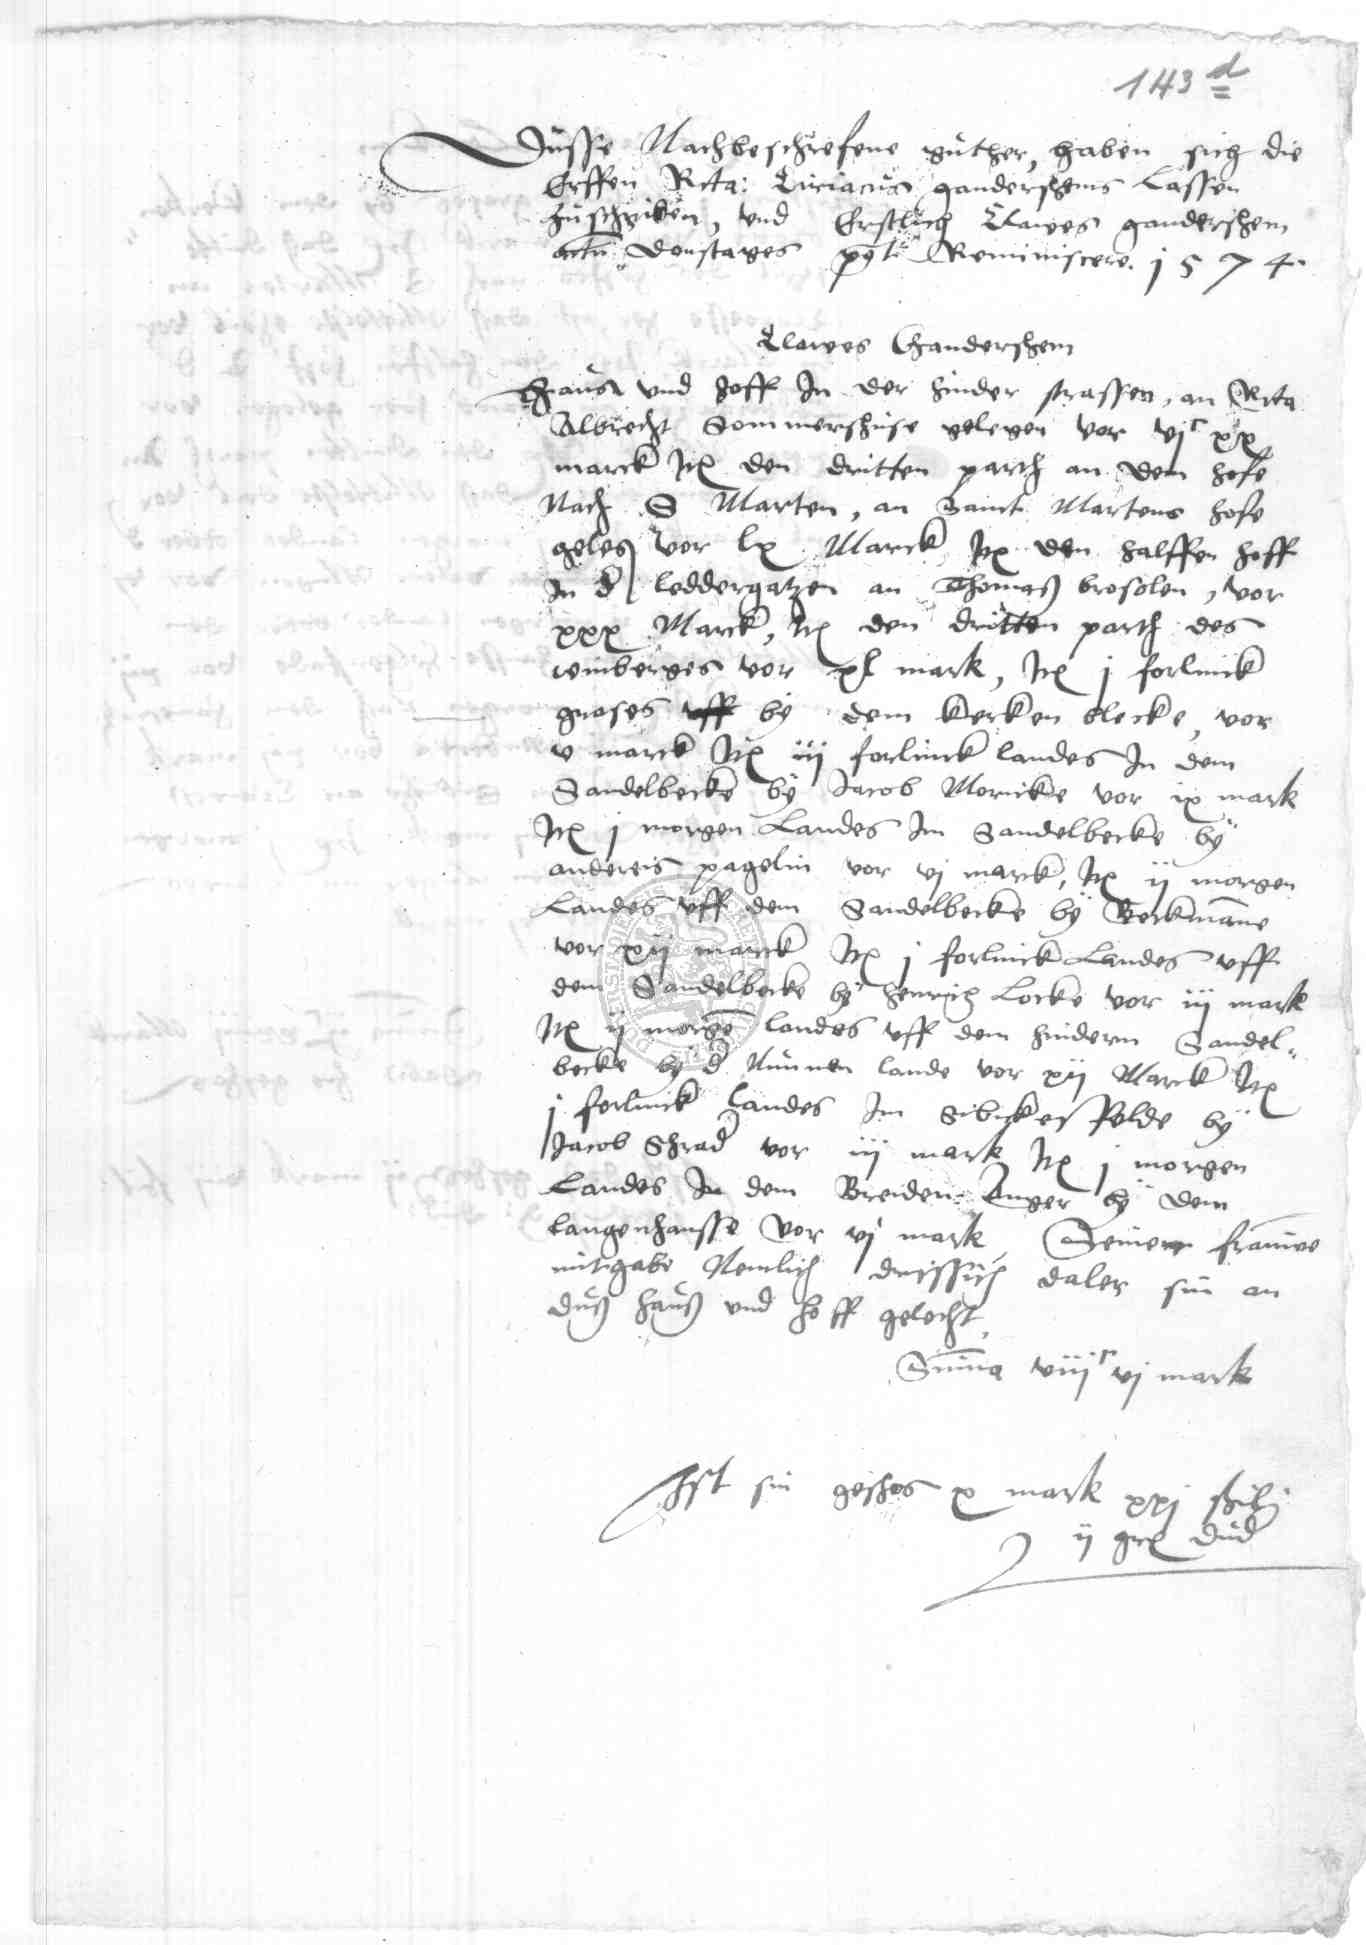 143 d
Dusse Nachbeschrefene guther, haben sich die
Erffen Rcta: Ciriacus gandershems Lassen
zuschriben, vnd Erstlich Clawes gandershem
actu Donstages pgt Reminiscere. 1574.
Clawes Gandershem
Hauß vnd hoff In der hinder strassen, an Rcta
Albrecht Sommershuse gelegen vor vjᶜ xx
marck Itē den dritten parth an dem hofe
Nach S Marten, an Sanct Martens hofe
geleg vor lx Marck Itē den halffen hoff
In d leddergatzen an Thomaß brosolen, vor
xxx Marck, Itē den dritten parth des
winberges vor xl mark, Itē j forlinck
grases by dem kerken blecke, vor
v marck Itē iij forlinck landes In dem
Sandelbecke by Jacob Monicke vor ix mark
Itē j morgen Landes Im Sandelbecke by
andereis pagelin vor vj marck, Itē ij morgen
Landes vff dem Sandelbecke by Beckmanne
vor xij marck Itē j forlinck Landes vff
dem Sandelbecke by henrich Locke vor iij mark
Itē ij morgē landes vff dem hindern Sandel-
becke by d Nunnen lande vor xij Marck Itē
j forlinck landes Im Sibickesfelde by
Jacob Shrad vor iij mark Itē j morgen
Landes In dem Breiden Anger by dem
langenhausse vor vj mark Seiner frauwe
mitgabe Nemlich drissich daler sin an
duß hauß vnd hoff gelecht,
Suma viijᶜ vj mark
Hst sin geschos x mark xxj schil
ij gr dud